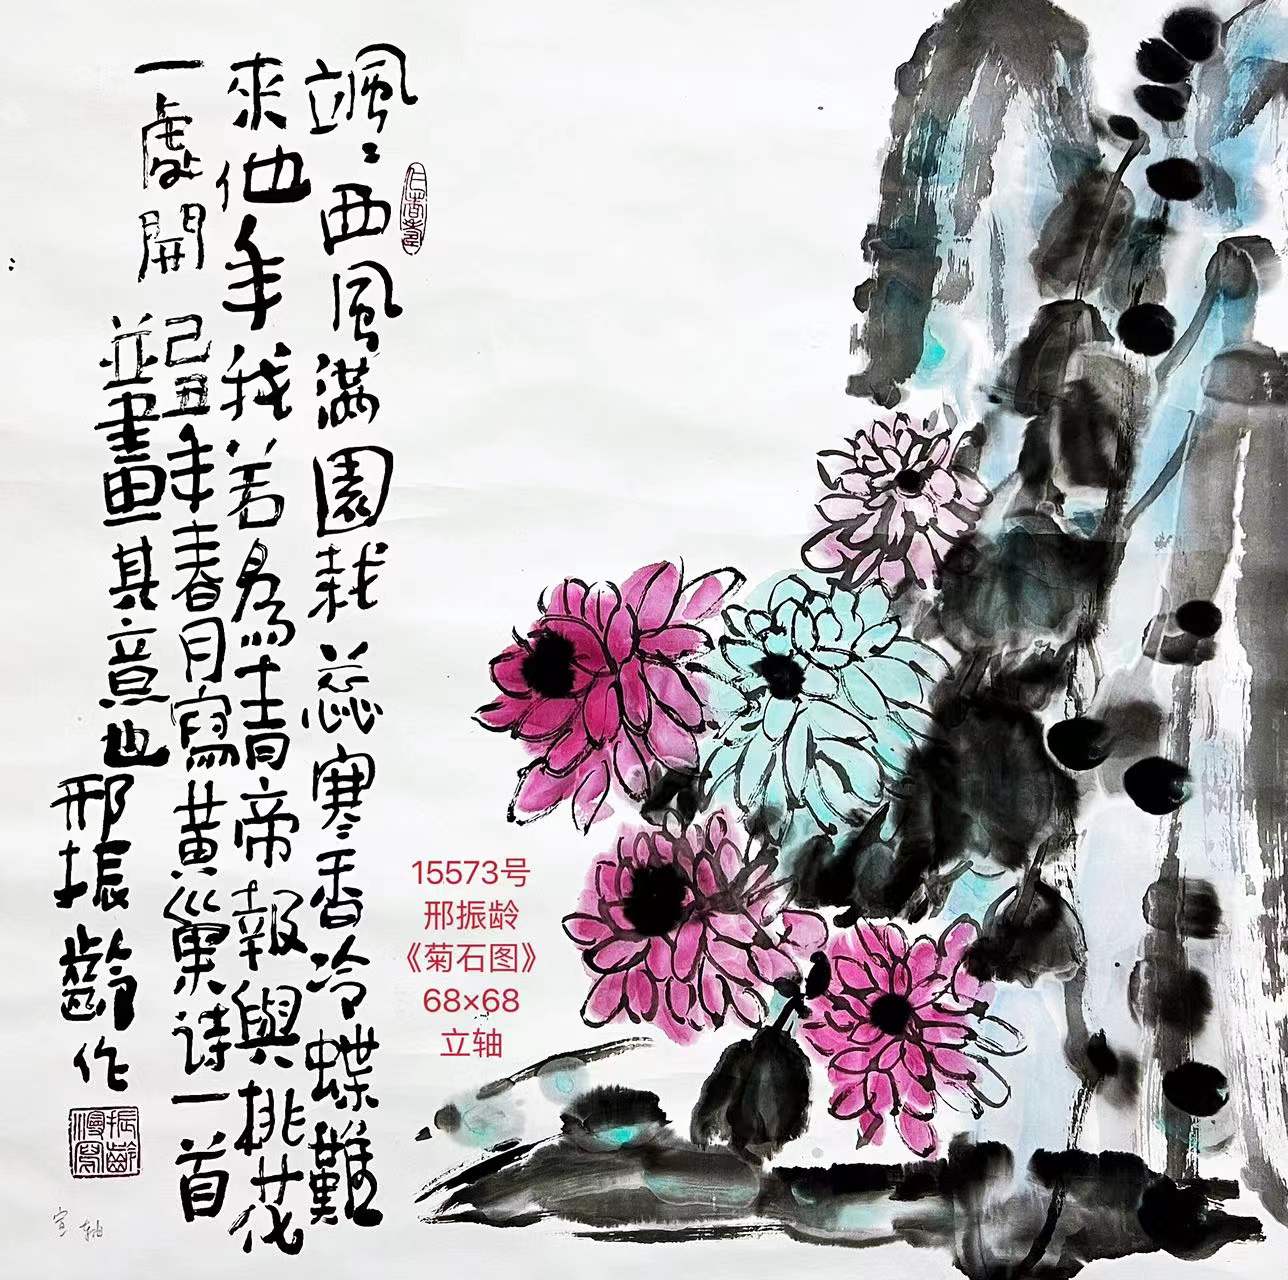 颯〻西風满園栽蕊寒〻香冷蝶難
來他年我若為青帝報與桃花
一處開
己丑年春月寫黄巢诗一首
並畫其意也
邢振齡作
仁者壽
振齡
漫寫
15573号
邢振龄
《菊石图》
68×68
立轴
宣轴